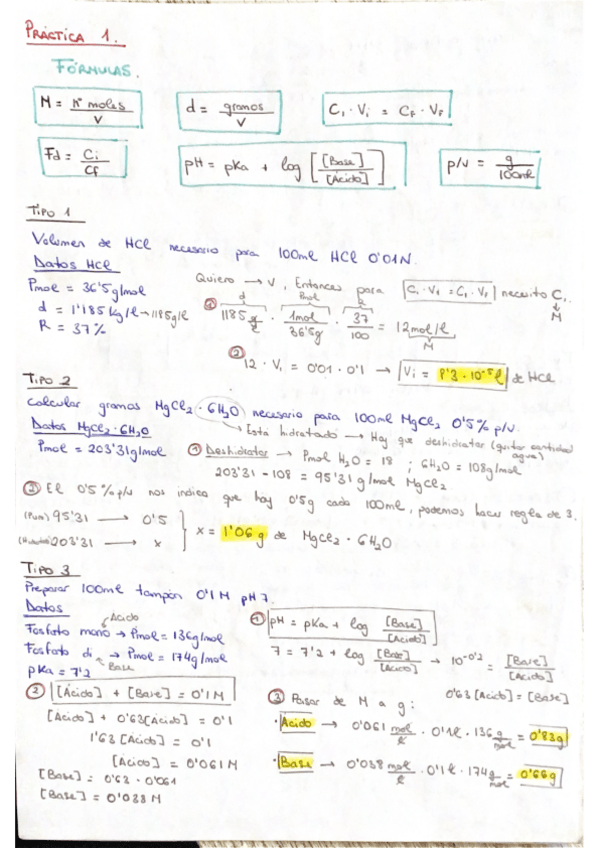 PRÁCTICA 1.
FÓRMULAS.
M = nº moles / V
d = gramos / V
Ci · Vi = CF · VF
Fd = Ci / CF
pH = pKa + log [[Base] / [Ácido]]
p/v = g / 100ml
TIPO 1
Volumen de HCl necesario para 100ml HCl 0'01N.
Datos HCl
Pmol = 36'5g/mol
d = 1'185 kg/l → 1185g/l
R = 37%
Quiero → V, Entonces para Ci · Vi = Ci · Vi necesito Ci.
M
d Pmol R
① 1185 g/l · 1mol / 36'5g · 37 / 100 = 12mol/l
M
② 12 · Vi = 0'01 · 0'1 → Vi = 8'3 · 10⁻⁵ l de HCl
TIPO 2
Calcular gramos MgCl2 · 6H2O necesario para 100ml MgCl2 0'5% p/v.
Datos MgCl2 · 6H2O
Pmol = 203'31g/mol
→ Está hidratado → Hay que deshidratar (quitar cantidad agua)
① Deshidratar → Pmol H2O = 18 ; 6H2O = 108g/mol
203'31 - 108 = 95'31 g/mol MgCl2
② El 0'5% p/v nos indica que hay 0'5g cada 100ml, podemos hacer regla de 3.
(Puro) 95'31 → 0'5
(Hidratado) 203'31 → x
x = 1'06 g de MgCl2 · 6H2O
TIPO 3
Preparar 100ml tampón 0'1M pH 7.
Datos
Ácido
Fosfato mono → Pmol = 136g/mol
Fosfato di → Pmol = 174g/mol
Base
pKa = 7'2
① pH = pKa + log [Base] / [Ácido]
7 = 7'2 + log [Base] / [Ácido] → 10⁻⁰'² = [Base] / [Ácido]
0'63 [Ácido] = [Base]
② [Ácido] + [Base] = 0'1M
[Ácido] + 0'63[Ácido] = 0'1
1'63 [Ácido] = 0'1
[Ácido] = 0'061M
[Base] = 0'63 · 0'061
[Base] = 0'038 M
③ Pasar de M a g:
· Ácido → 0'061 mol/l · 0'1l · 136 g/mol = 0'83g
· Base → 0'038 mol/l · 0'1l · 174 g/mol = 0'66g